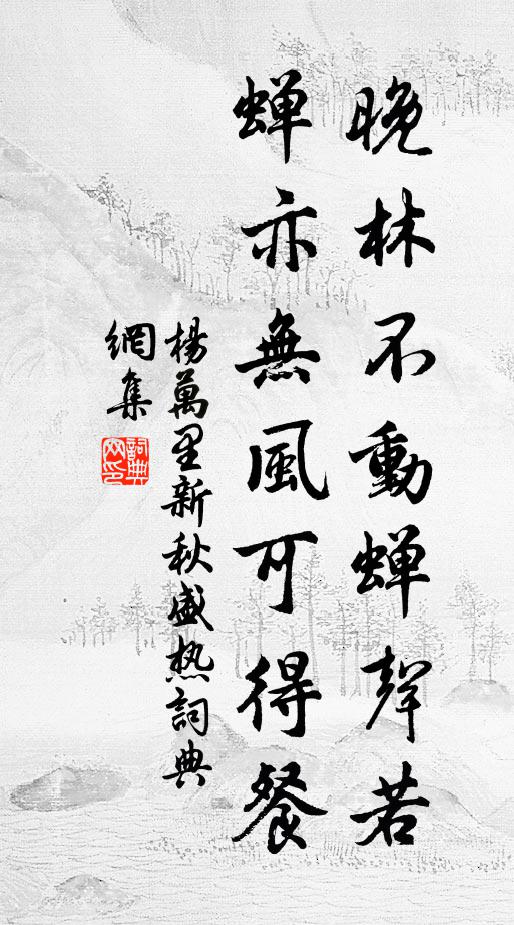 晚林不動蟬聲若
蟬亦無風可得餐
楊萬里新秋盛热詞典
網集
詞典網印